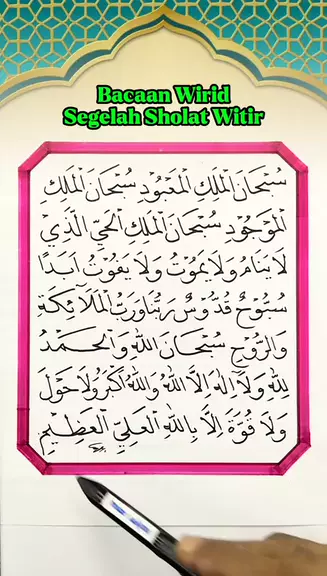 Bacaan Wirid
Segelah Sholat Witir
سُبْحَانَ الْمَلِكِ الْمَعْبُوْدِ سُبْحَانَ الْمَلِكِ
الْمَوْجُوْدِ سُبْحَانَ الْمَلِكِ الْحَيِّ الَّذِيْ
لَا يَنَامُ وَلَا يَمُوْتُ وَلَا يَفُوْتُ اَبَدًا
سُبُّوْحٌ قُدُّوْسٌ رَبُّنَا وَرَبُّ الْمَلَآئِكَةِ
وَالرُّوْحِ سُبْحَانَ اللهِ وَالْحَمْدُ
لِلهِ وَلَا اِلٰهَ اِلَّا اللهُ وَاللهُ اَكْبَرُ وَلَا حَوْلَ
وَلَا قُوَّةَ اِلَّا بِاللهِ الْعَلِيِّ الْعَظِيْمِ